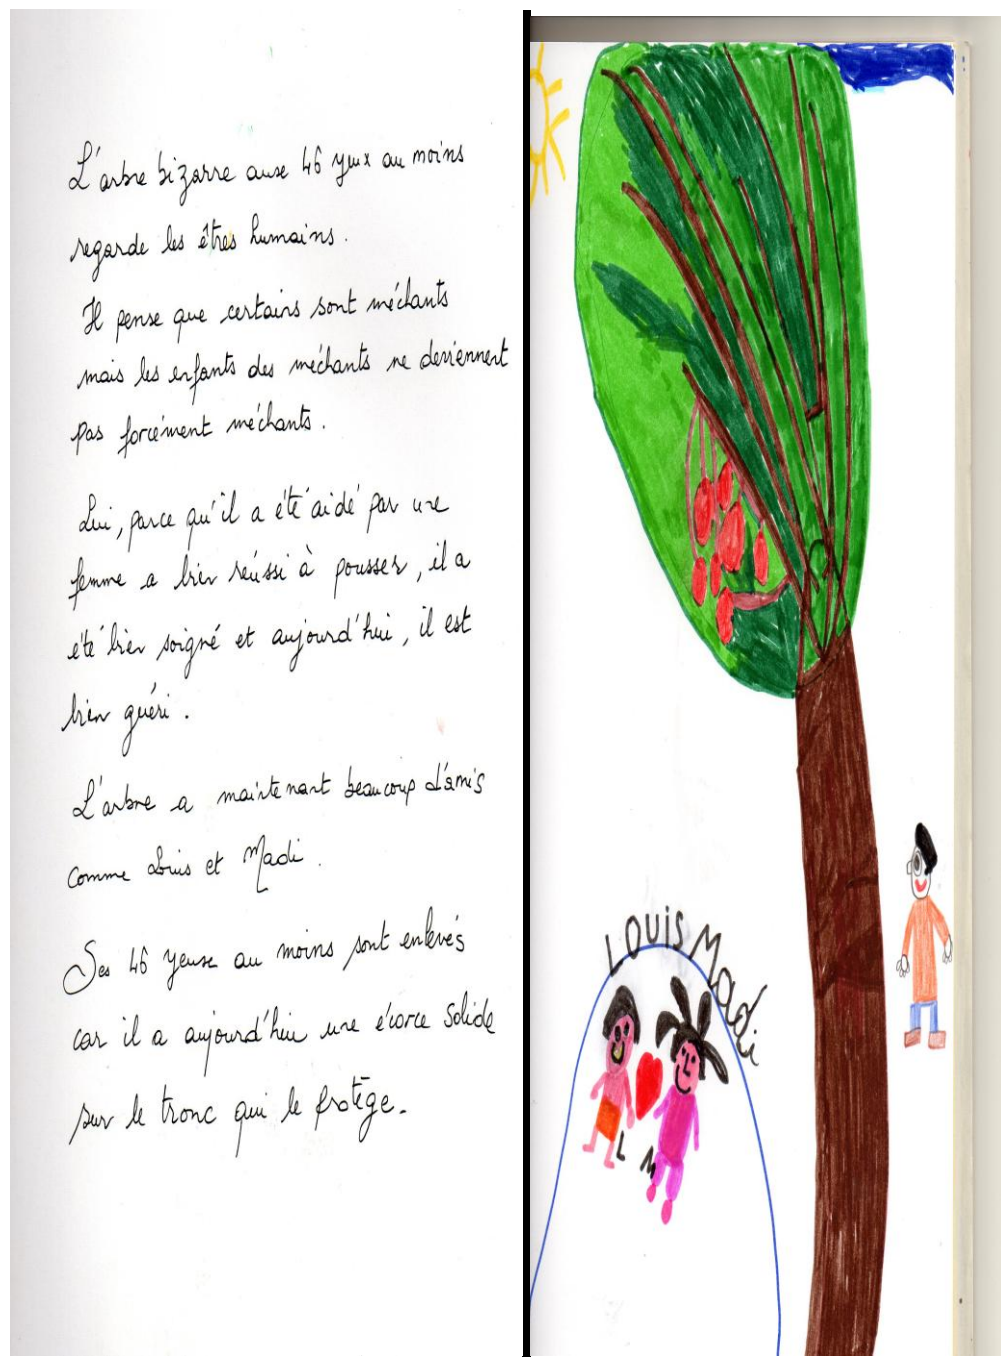 L'arbre bizarre aux 46 yeux au moins
regarde les êtres humains.
Il pense que certains sont méchants
mais les enfants des méchants ne deviennent
pas forcément méchants.
Lui, parce qu'il a été aidé par une
femme a bien réussi à pousser, il a
été bien soigné et aujourd'hui, il est
bien guéri.
L'arbre a maintenant beaucoup d'amis
comme Louis et Madi.
Ses 46 yeux au moins sont enlevés
car il a aujourd'hui une écorce solide
sur le tronc qui le protège.
LOUIS Madi
L M